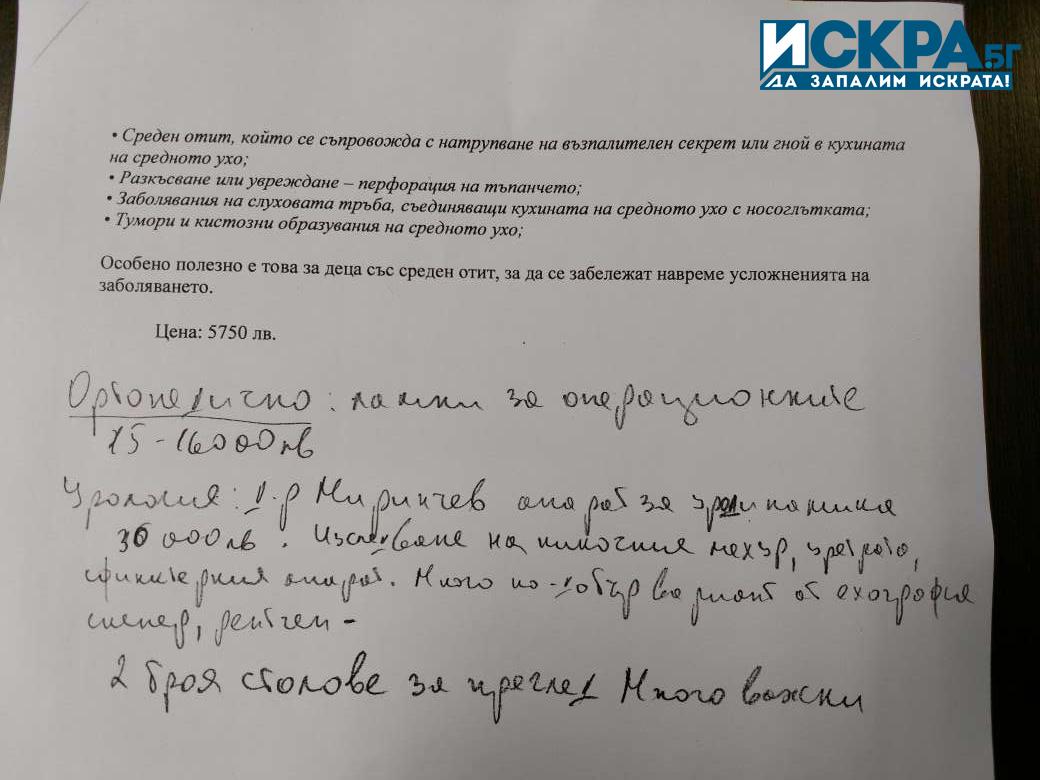 ИСКРА.БГ
ДА ЗАПАЛИМ ИСКРАТА!
• Среден отит, който се съпровожда с натрупване на възпалителен секрет или гной в кухината
на средното ухо;
• Разкъсване или увреждане – перфорация на тъпанчето;
• Заболявания на слуховата тръба, съединяващи кухината на средното ухо с носоглътката;
• Тумори и кистозни образувания на средното ухо;
Особено полезно е това за деца със среден отит, за да се забележат навреме усложненията на
заболяването.
Цена: 5750 лв.
Ортопедично: лампи за операционните
15-16000лв
Урология: д-р Миринчев апарат за уродинамика
30 000лв. Изследване на пикочния мехур, уретрата,
сфинктерния апарат. Много по-добър вариант от ехография
скенер, рентген -
2 броя столове за преглед Много важни